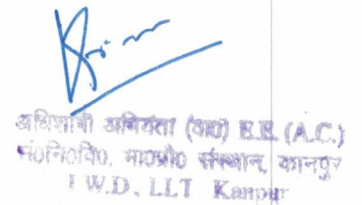 अधिशाषी अभियंता (वा0) E.E. (A.C.)
सं0नि0वि0, भा0प्रौ0 संस्थान, कानपुर
I.W.D., I.I.T. Kanpur